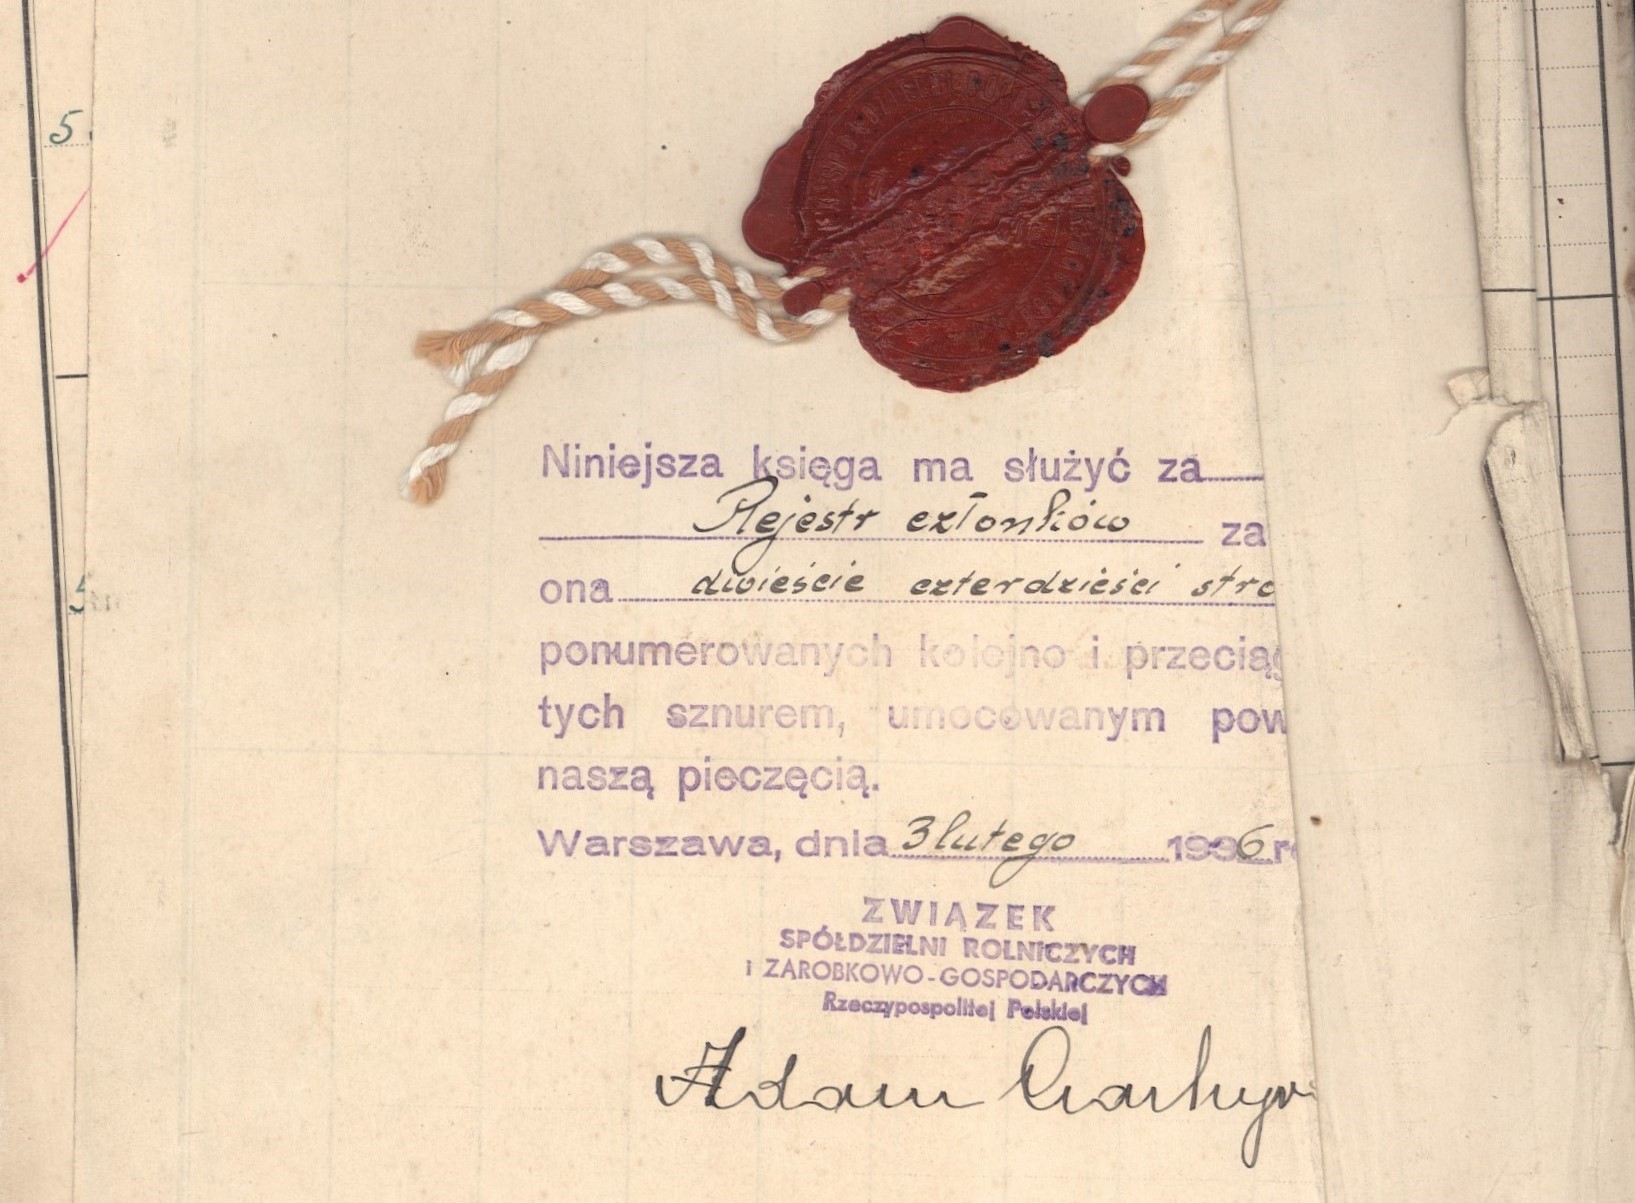 5.
Niniejsza księga ma służyć za
Rejestr członków za
ona dwieście czterdzieści stro
ponumerowanych kolejno i przeciąg
tych sznurem, umocowanym pow
naszą pieczęcią.
Warszawa, dnia 3 lutego 1936 r
ZWIĄZEK
SPÓŁDZIELNI ROLNICZYCH
i ZAROBKOWO-GOSPODARCZYCH
Rzeczypospolitej Polskiej
Adam
5